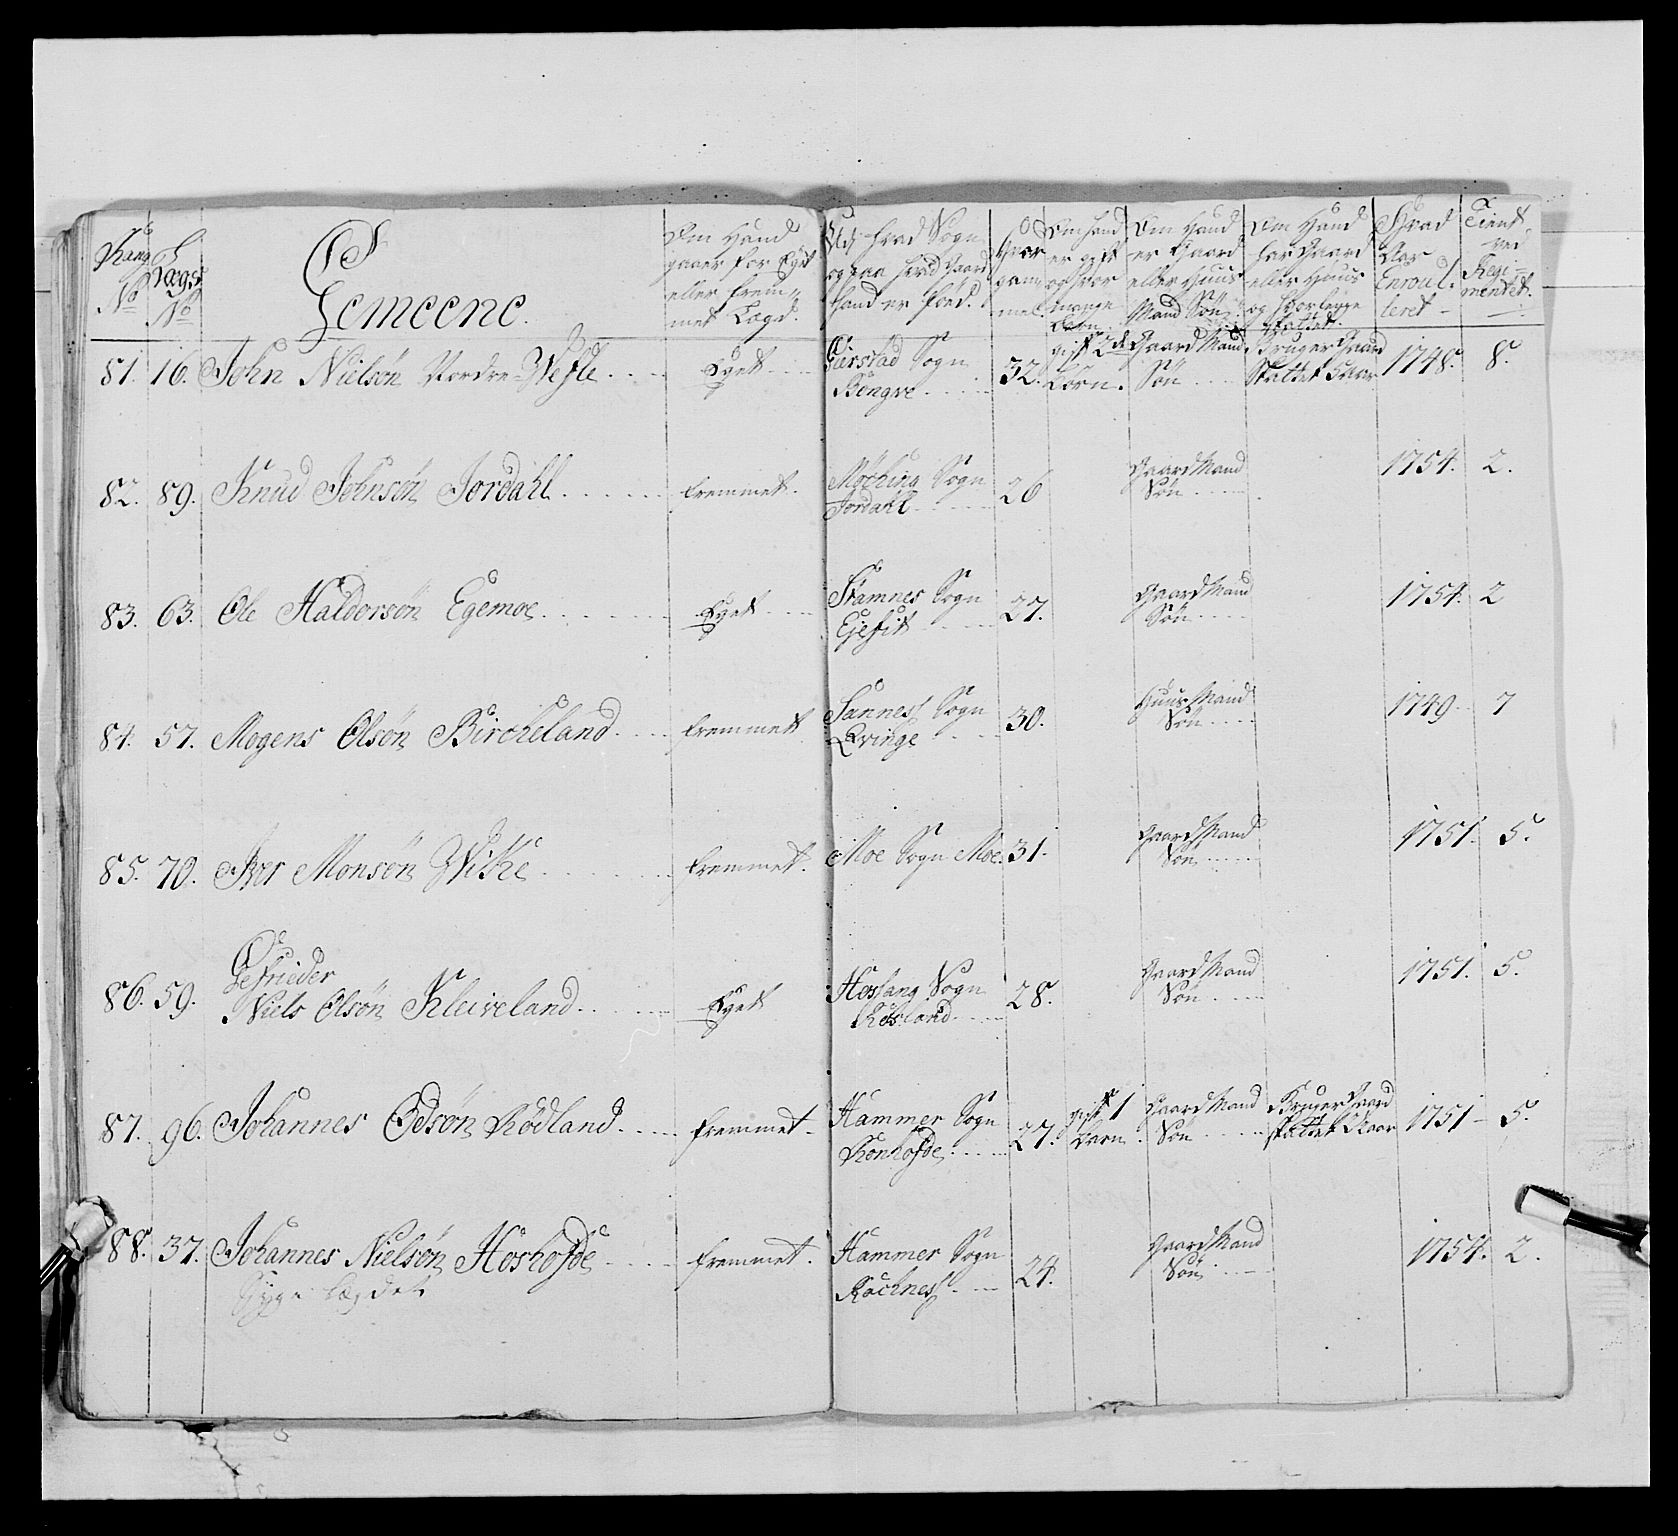 Rang No
Lægs No
Gemeene.
Om Hand gaaer for Eget eller frem-met Lægd.
Ud hvad Sogn og paa hvad Gaard hand er föed.
Hvor gam-mel
Om hand er gift og hvor mange börn.
Om Hand er Gaard eller Huus Mand Sön
Om Hand har Gaard eller Huus og hvor lenge skattet.
Hvad Aar Enroul-leret
Tient ved Regi-mentet.
81. 16. John Nielsön Nordre-Wefle .... Eget .... Gierstad Sogn Böngve .... 32. gift 2de börn. Gaard Mand Sön .... Bruger Gaard skattet 5 aar 1748. 8.
82. 89. Knud Johnsön Jordahl ...... fremmet. Möching Sogn Jordahl ..... 26 Gaard Mand Sön ..... 1754. 2.
83. 63. Ole Haldorsön Egemoe ....... Eget .... Stamnes Sogn Ejefit ..... 27. Gaard Mand Sön .... 1754. 2
84. 57. Mogens Olsön Bircheland ..... fremmet Sannes Sogn Qvinge .... 30. Huus Mand Sön .... 1749. 7
85. 70. Iver Monsön Wike ....... fremmet. Moe Sogn Moe. 31. Gaard Mand Sön .... 1751. 5.
86. 59. Gefrieder
Niels Olsön Kleiveland ..... Eget Hosang Sogn Röisland .... 28. Gaard Mand Sön .... 1751. 5.
87. 96. Johannes Odsön Rödland ..... fremmet. Hammer Sogn Ronhofde .... 27. gift 1 barn. Gaard Mand Sön .... Bruger Gaard skattet 2 Aar 1751 - 5.
88. 37. Johannes Nielsön Hoshofde ..... fremmet. Hammer Sogn Rochnes ... 24. Gaard Mand Sön .... 1754. 2.
Lægdet